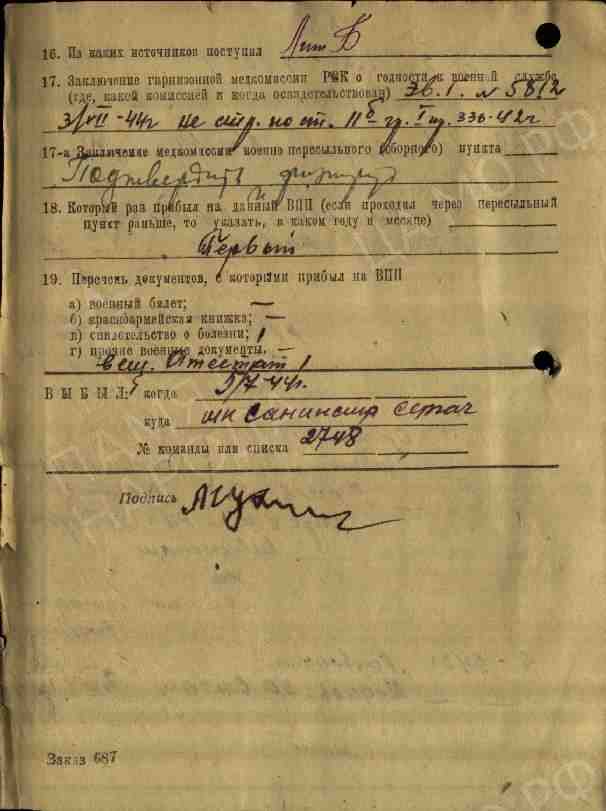 16. Из каких источников поступил Лит Б
17. Заключение гарнизонной медкомиссии РКК о годности к военной службе
(где, какой комиссией и когда освидетельствован) эв. г. № 5812
3/VII-44г не стр. по ст. 11б гр. I пр. 336-42г
17-а Заключение медкомиссии военно пересыльного (сборного) пункта
Подтвердить
18. Который раз прибыл на данный ВПП (если проходил через пересыльный
пункт раньше, то указать, в каком году и месяце)
Первый
19. Перечень документов, с которыми прибыл на ВПП
а) военный билет; —
б) красноармейская книжка; —
в) свидетельство о болезни; 1
г) прочие военные документы. —
вещ. Атестат 1
ВЫБЫЛ: когда 5/7-44г.
куда
№ команды или списка 2748
Подпись
Заказ 687